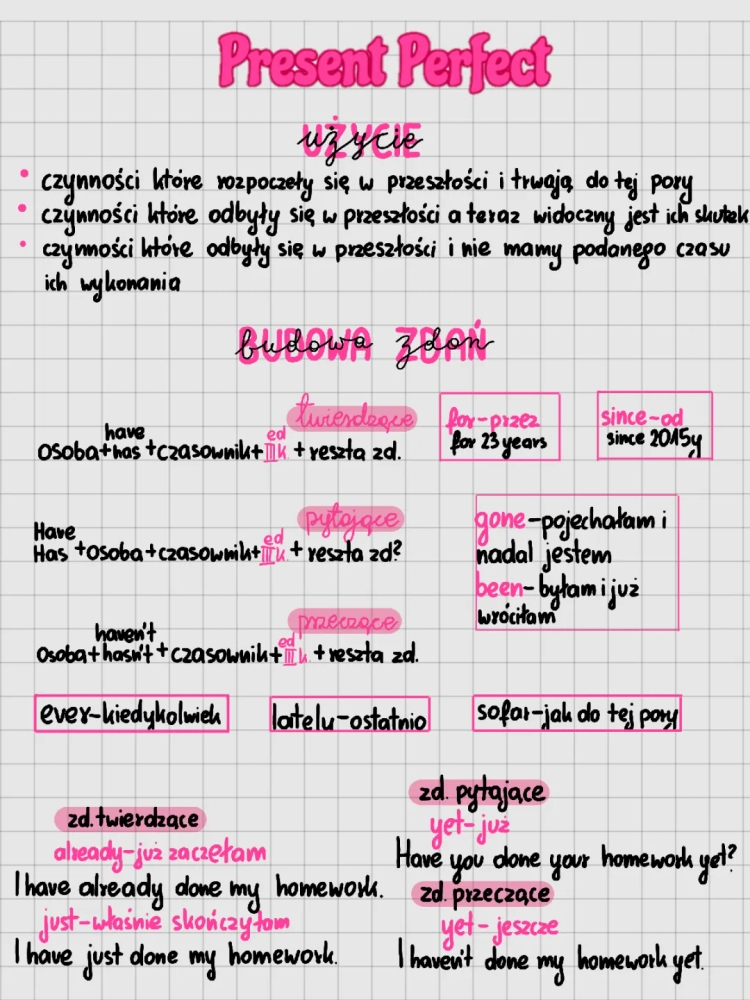 Present Perfect
UŻYCIE
użycie
• czynności które rozpoczeły się w przeszłości i trwają do tej pory
• czynności które odbyły się w przeszłości a teraz widoczny jest ich skutek
• czynności które odbyły się w przeszłości i nie mamy podanego czasu
ich wykonania
BUDOWA ZDAŃ
budowa zdań
twierdzące
have
ed
osoba+has+czasownik+III k. + reszta zd.
for-przez
for 23 years
since-od
since 2015y
pytające
Have
ed
Has +osoba+czasownik+III k. + reszta zd?
gone-pojechałam i
nadal jestem
been-byłam i już
wróciłam
przeczące
haven't
ed
osoba+hasn't+czasownik+III k. +reszta zd.
ever-kiedykolwiek
latelu-ostatnio
sofar-jak do tej pory
zd.twierdzące
already-już zaczełam
I have already done my homework.
just-właśnie skończyłam
I have just done my homework.
zd. pytające
yet-już
Have you done your homework yet?
zd. przeczące
yet-jeszcze
I haven't done my homework yet.